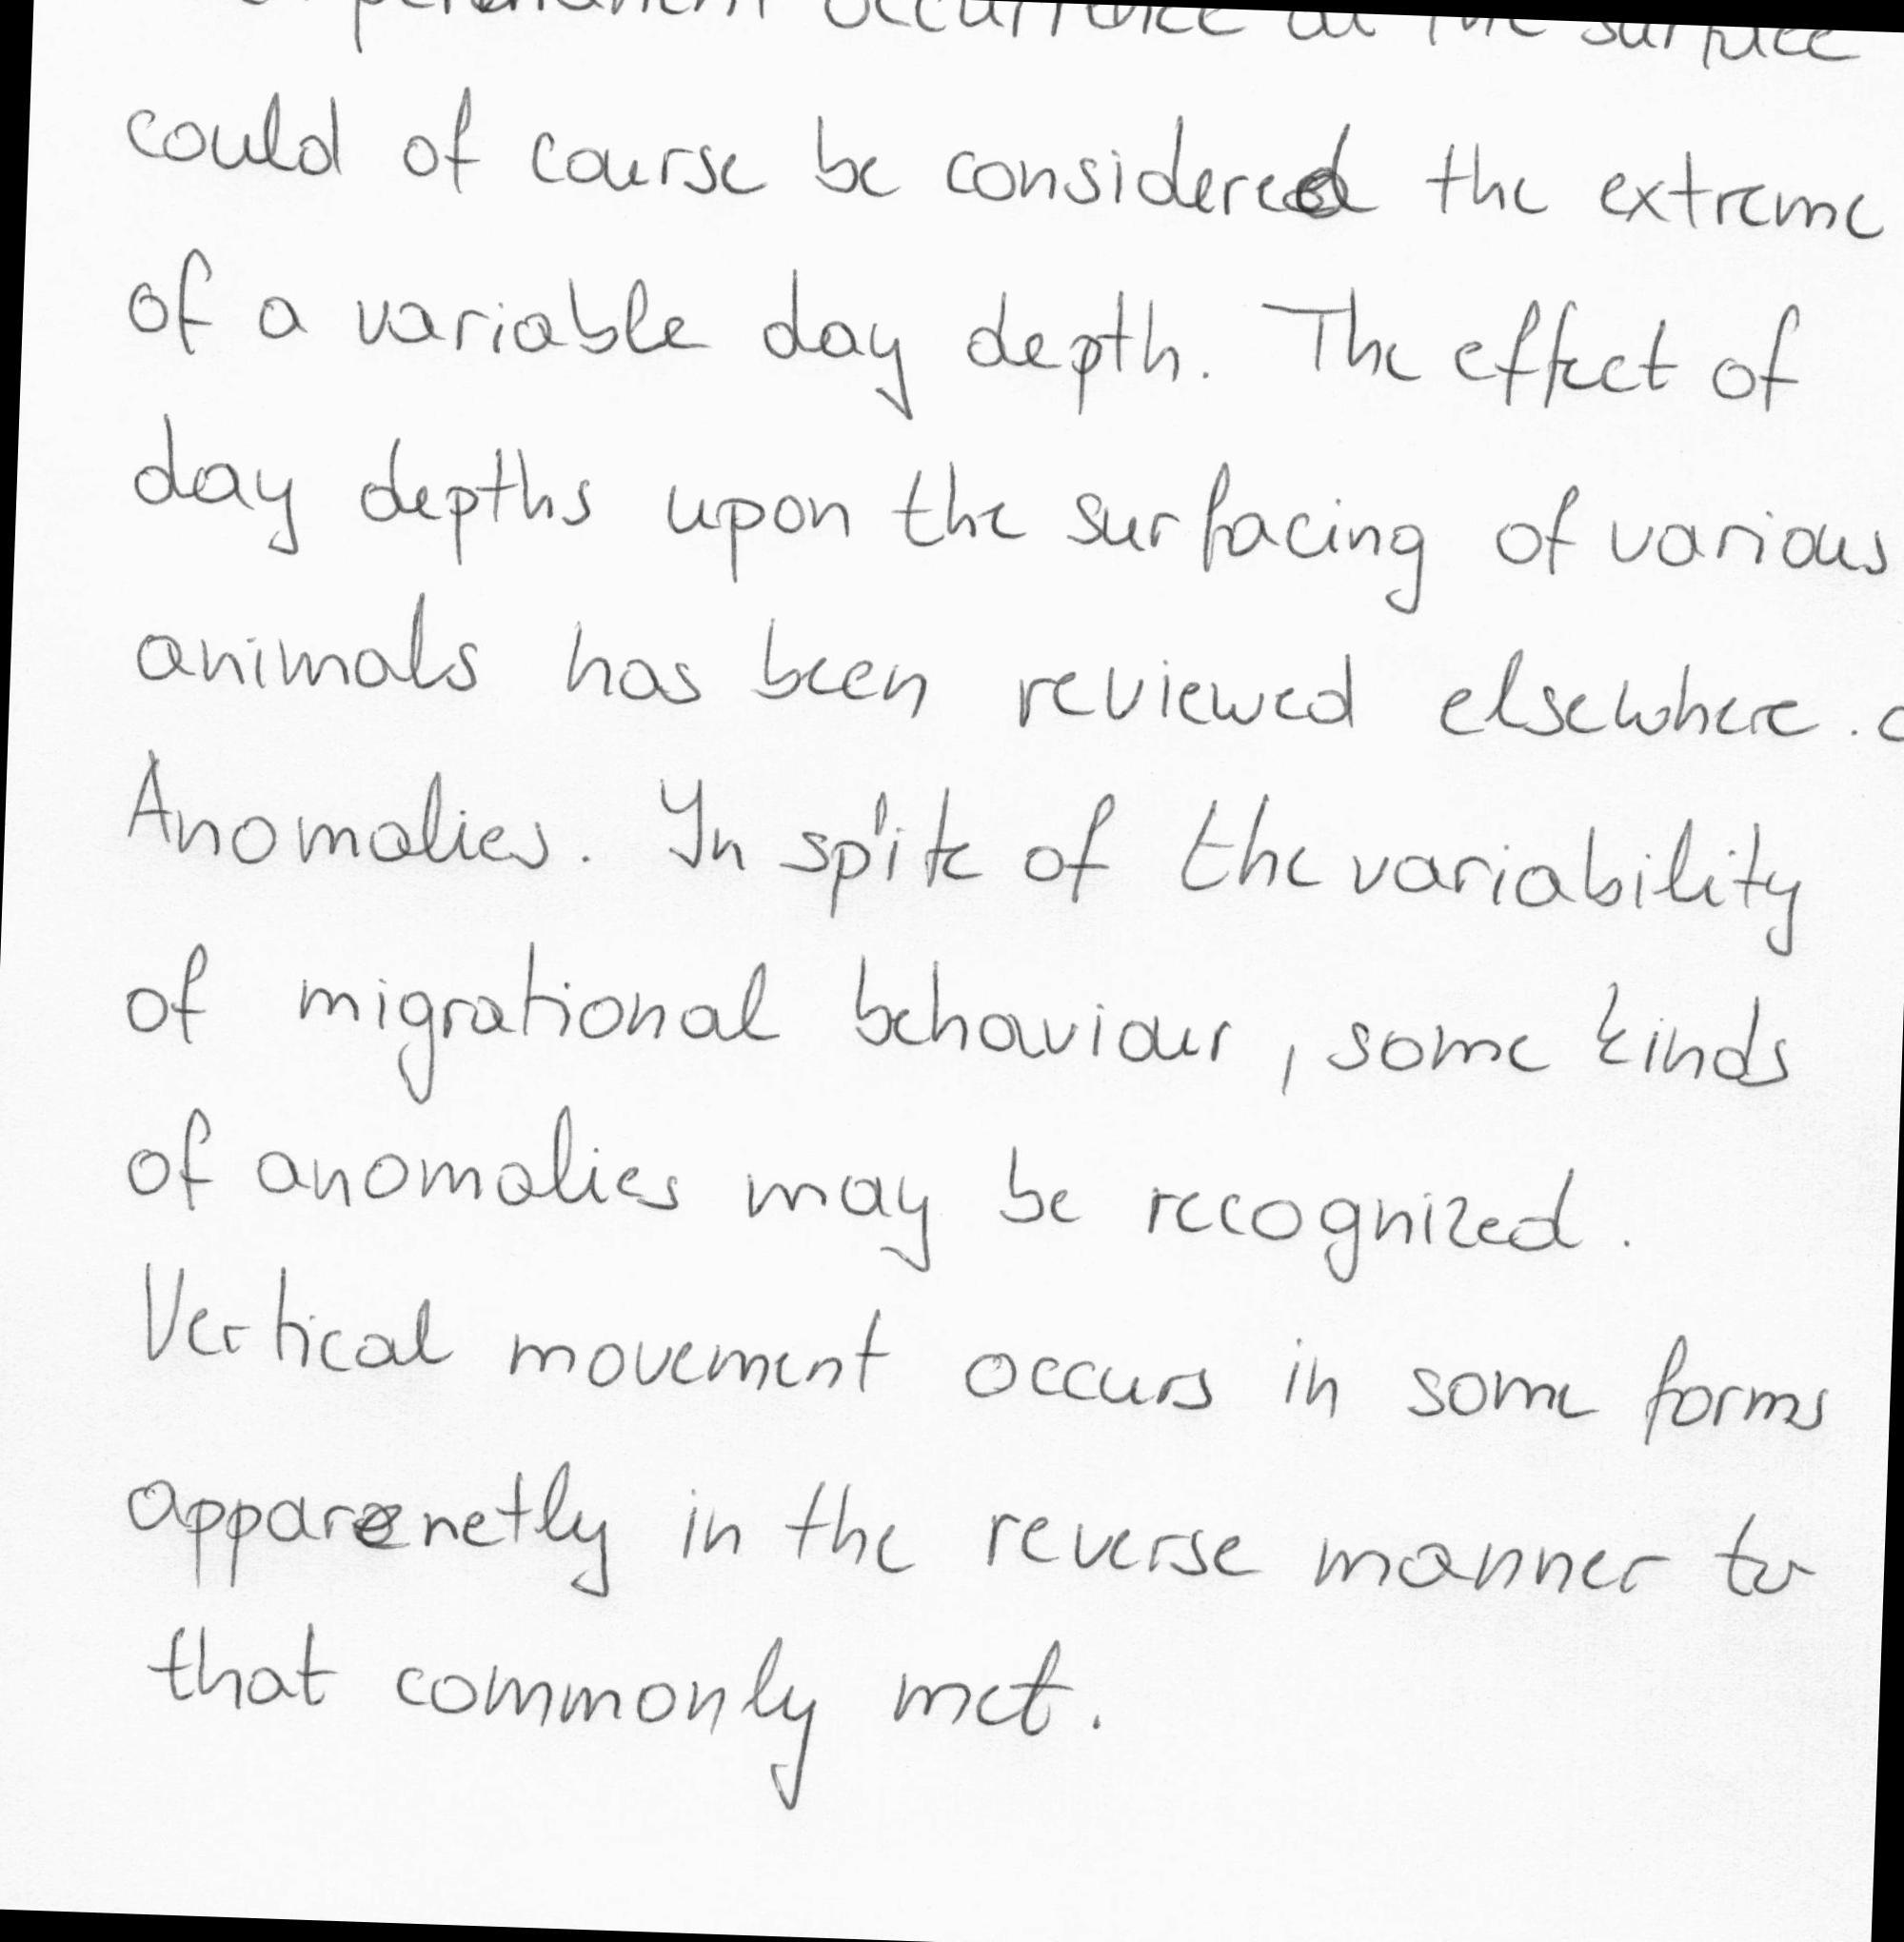 permanent occurrence at the surface
could of course be considered the extreme
of a variable day depth. The effect of
day depths upon the surfacing of various
animals has been reviewed elsewhere.
Anomalies. In spite of the variability
of migrational behaviour, some kinds
of anomalies may be recognized.
Vertical movement occurs in some forms
apparenetly in the reverse manner to
that commonly met.